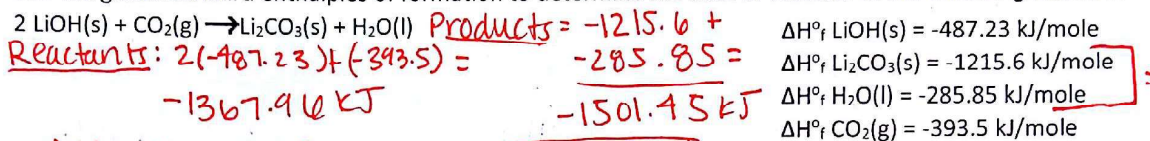 2 LiOH(s) + CO₂(g) →Li₂CO₃(s) + H₂O(l) Products = -1215.6 +
Reactants: 2(-487.23)+(-393.5) = -285.85 =
-1367.96 KJ -1501.45 KJ
ΔH°f LiOH(s) = -487.23 kJ/mole
ΔH°f Li₂CO₃(s) = -1215.6 kJ/mole
ΔH°f H₂O(l) = -285.85 kJ/mole
ΔH°f CO₂(g) = -393.5 kJ/mole